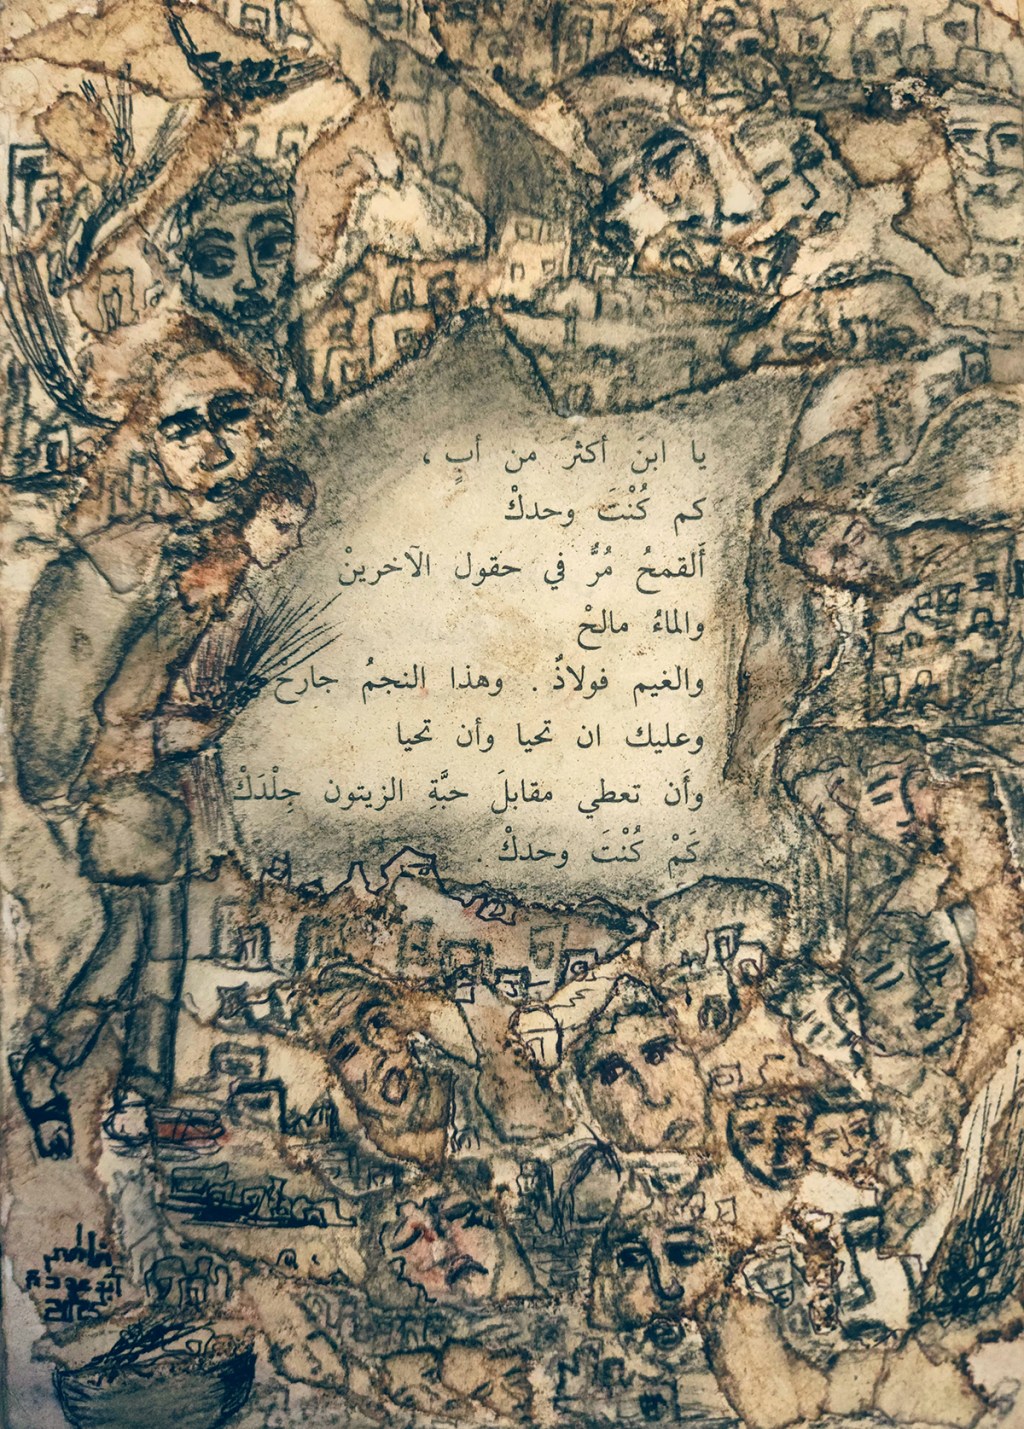 يا ابنَ أكثرَ من أبٍ ،
كم كُنْتَ وحدكْ
أَلقمحُ مُرٌّ في حقول الآخرينْ
والماءُ مالحْ
والغيم فولاذٌ . وهذا النجمُ جارحْ
وعليك ان تحيا وأن تحيا
وأَن تعطي مقابلَ حبَّةِ الزيتون جِلْدَكْ
كَمْ كُنْتَ وحدكْ .
أبو عودة
2015